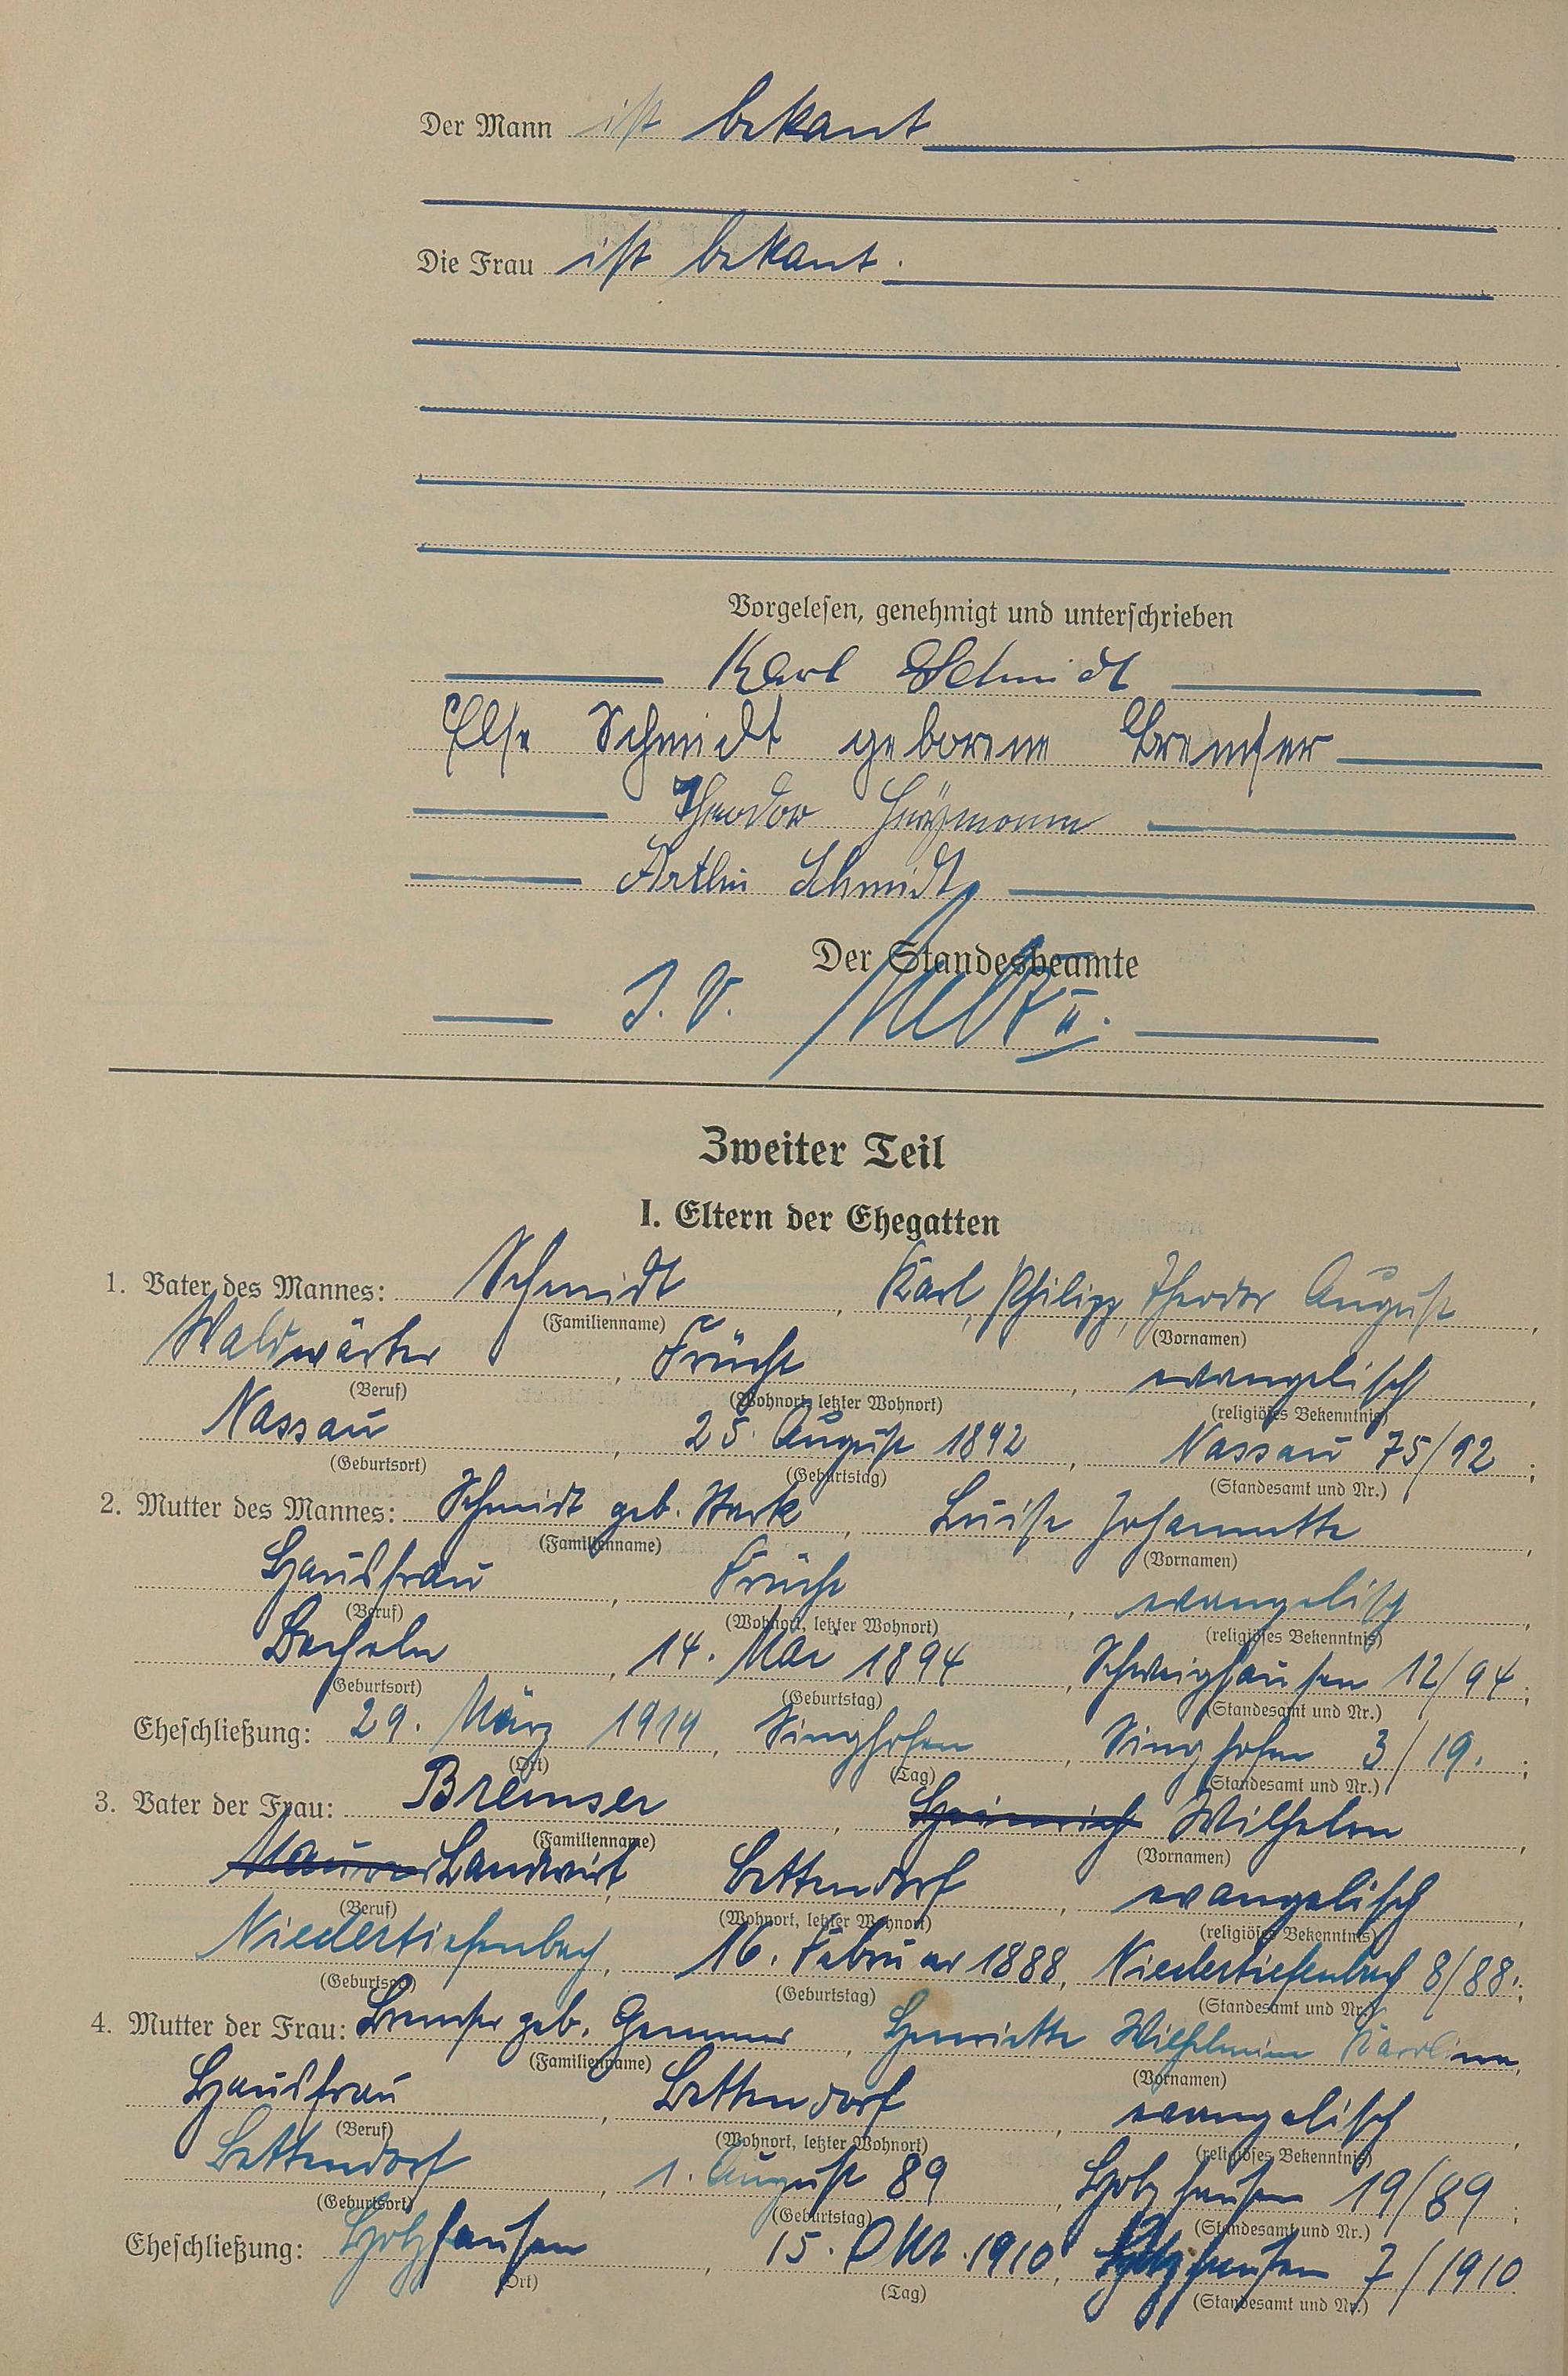 Der Mann ist bekant
Die Frau ist bekant.
Vorgelesen, genehmigt und unterschrieben
Karl Schmidt
Else Schmidt geborene Bremser
Theodor
Schmidt
Der Standesbeamte
J. V.
Zweiter Teil
I. Eltern der Ehegatten
1. Vater des Mannes: Schmidt, Karl, Philipp, Theodor August,
(Familienname) (Vornamen)
Waldwärter, Frücht, evangelisch,
(Beruf) (Wohnort, letzter Wohnort) (religiöses Bekenntnis)
Nassau, 25. August 1892, Nassau 75/92;
(Geburtsort) (Geburtstag) (Standesamt und Nr.)
2. Mutter des Mannes: Schmidt geb. Stark, Luise Johannette,
(Familienname) (Vornamen)
Hausfrau, Frücht, evangelisch,
(Beruf) (Wohnort, letzter Wohnort) (religiöses Bekenntnis)
Dachseln, 14. Mai 1894, Schweighausen 12/94;
(Geburtsort) (Geburtstag) (Standesamt und Nr.)
Eheschließung: 29. März 1919, Singhofen, Singhofen 3/19.;
(Ort) (Tag) (Standesamt und Nr.)
3. Vater der Frau: Bremser, Heinrich Wilhelm,
(Familienname) (Vornamen)
Maurer Landwirt, Bettendorf, evangelisch,
(Beruf) (Wohnort, letzter Wohnort) (religiöses Bekenntnis)
Niedertiefenbach, 16. Februar 1888, Niedertiefenbach 8/88;
(Geburtsort) (Geburtstag) (Standesamt und Nr.)
4. Mutter der Frau: Bremser geb. Gemmer, Henriette Wilhelmine Karoline,
(Familienname) (Vornamen)
Hausfrau, Bettendorf, evangelisch,
(Beruf) (Wohnort, letzter Wohnort) (religiöses Bekenntnis)
Bettendorf, 1. August 89, Holzhausen 19/89;
(Geburtsort) (Geburtstag) (Standesamt und Nr.)
Eheschließung: Holzhausen, 15. Okt. 1910, Holzhausen 7/1910.
(Ort) (Tag) (Standesamt und Nr.)